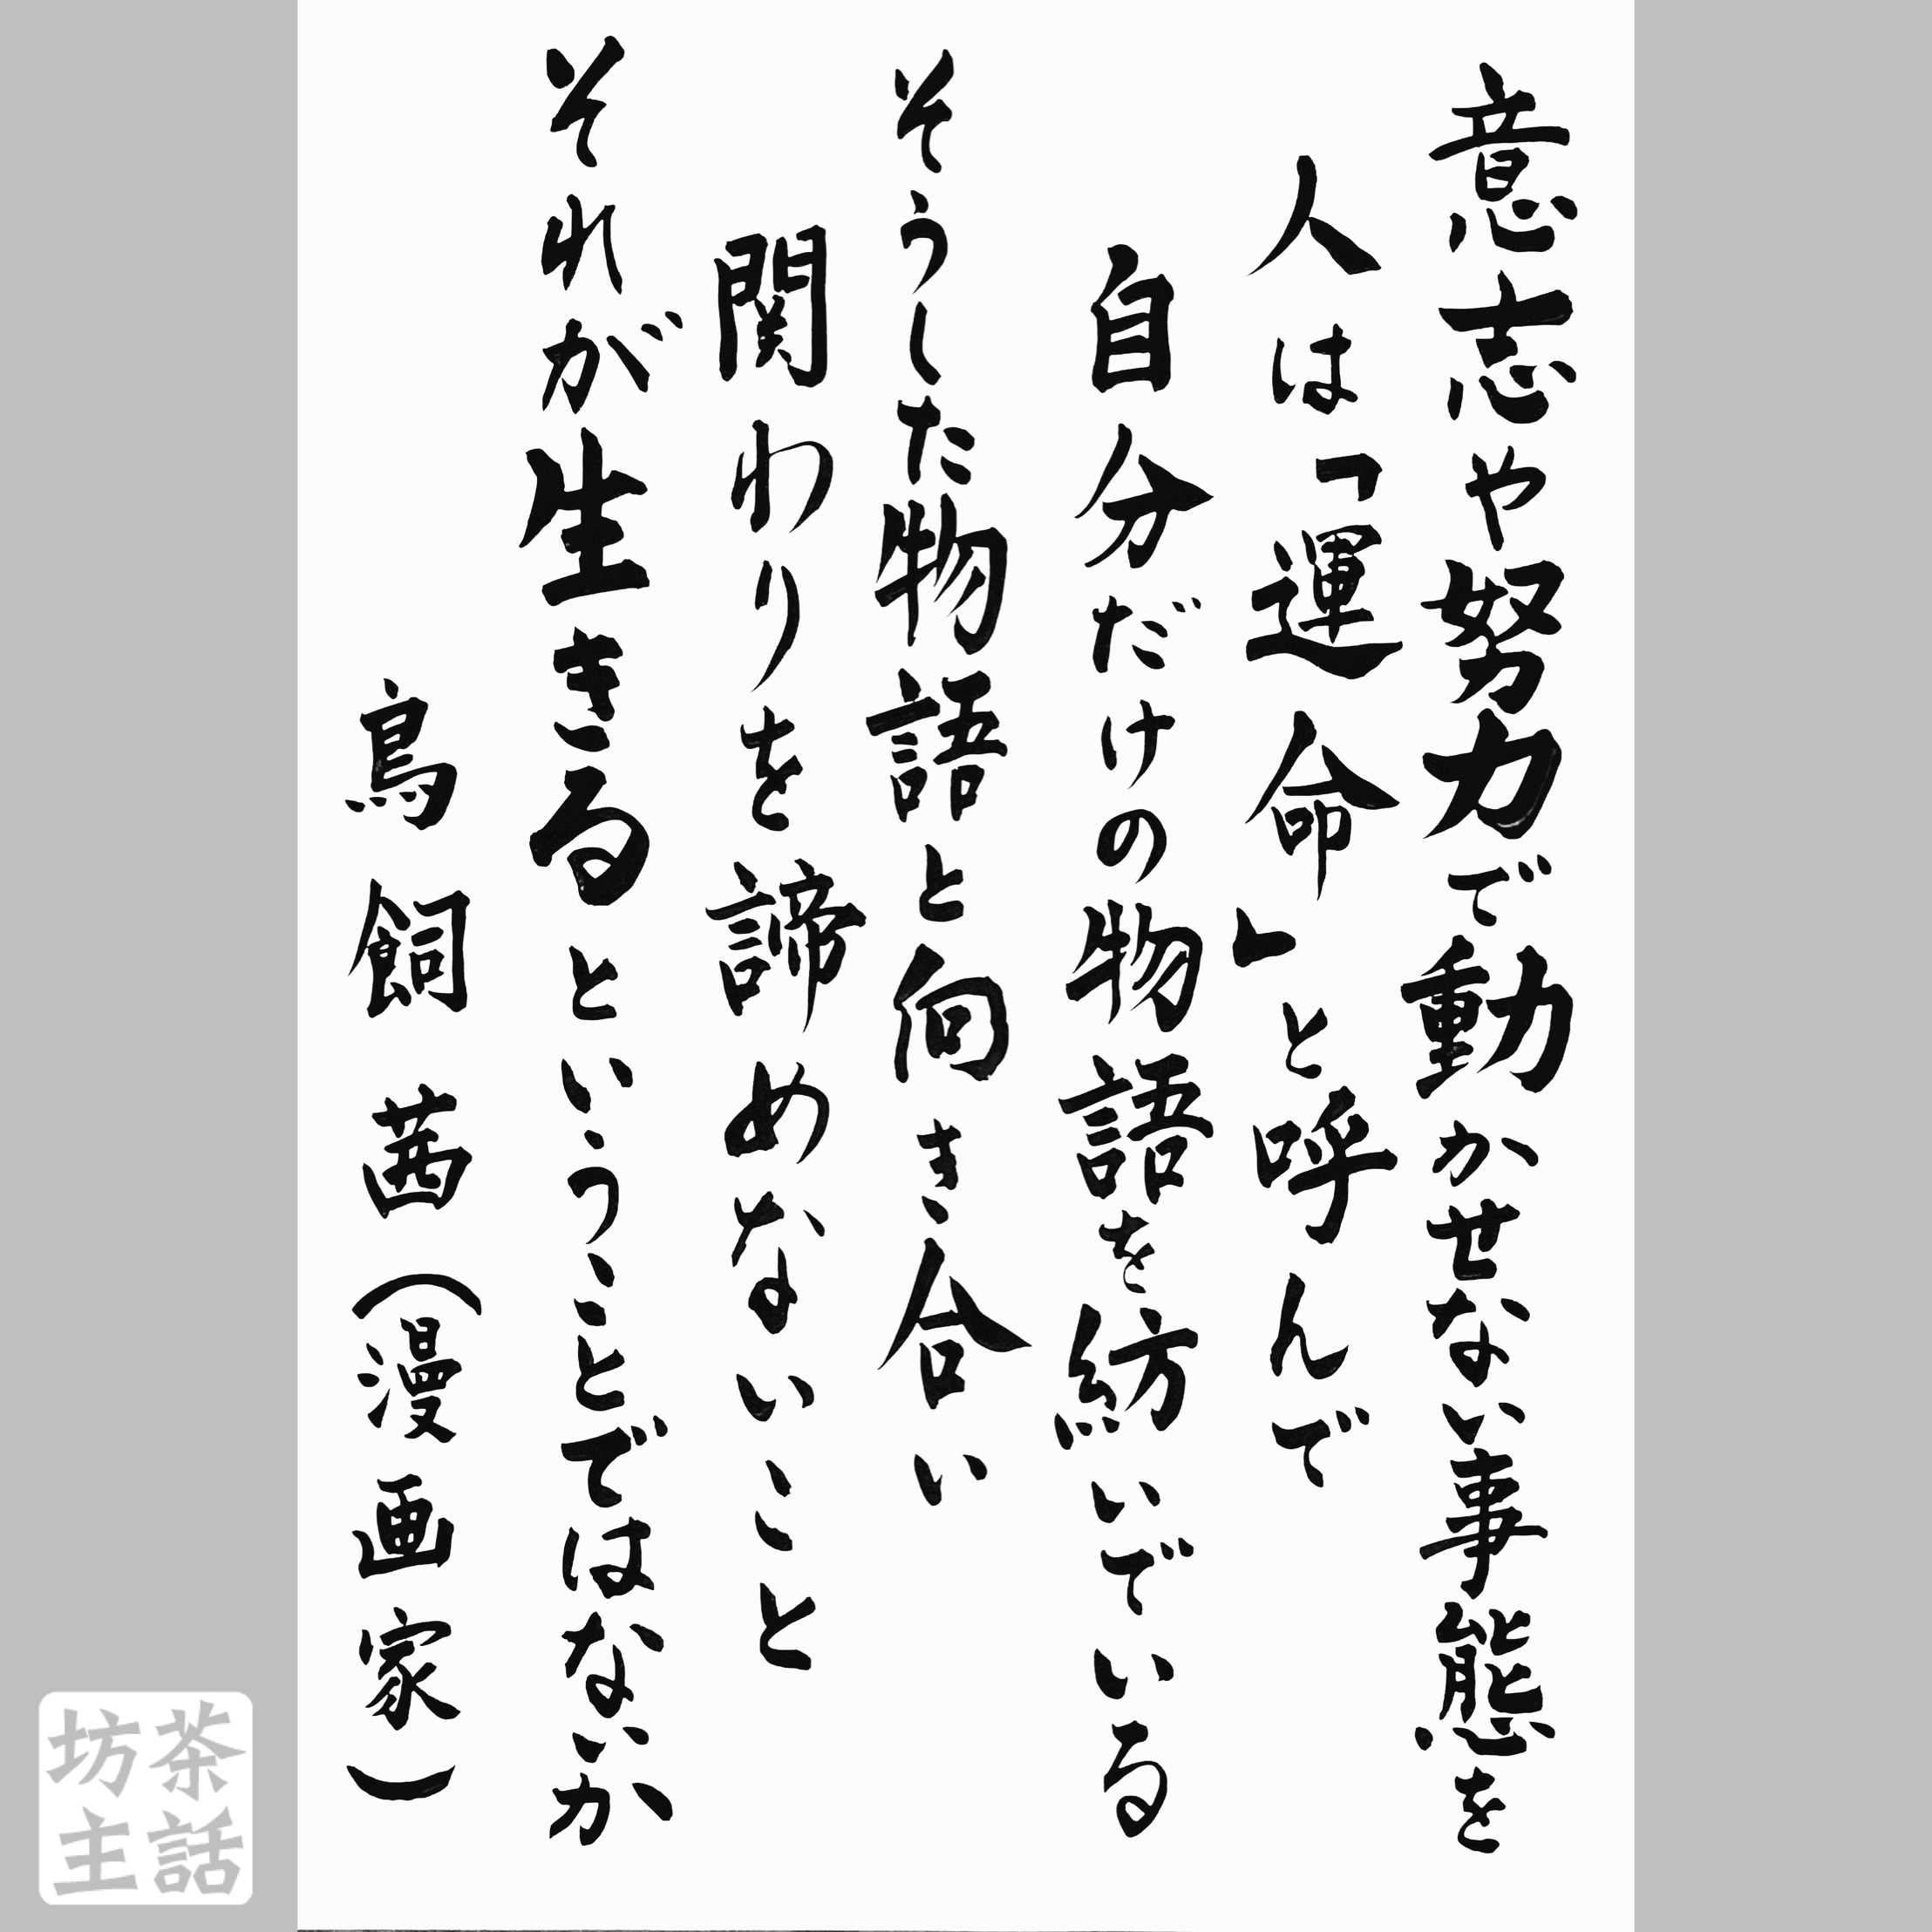 意志や努力で動かせない事態を
人は「運命」と呼んで
自分だけの物語を紡いでいる
そうした物語と向き合い
関わりを諦めないこと
それが生きるということではないか
鳥飼 茜（漫画家）
茶話
坊主